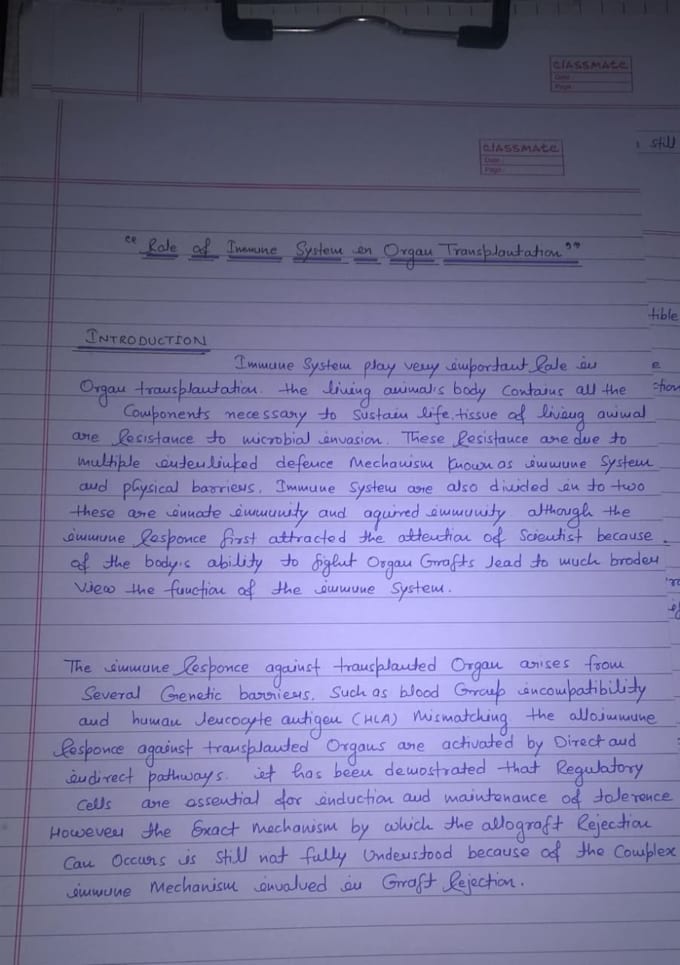 CLASSMATE
Date :
Page :
CLASSMATE
Date :
Page :
still
"Role of Immune System in Organ Transplantation"
tible
INTRODUCTION
Immune System play very important Role in
e
Organ transplantation. the living animal's body Contains all the
ction
Components necessary to sustain life. tissue of living animal
are Resistance to microbial invasion. These Resistance are due to
multiple interlinked defence Mechanism Known as immune System
and physical barriers. Immune System are also divided in to two
these are innate immunity and aquired immunity. although the
immune Responce first attracted the attention of Scientist because
of the body's ability to fight Organ Grafts lead to much broder
View the function of the immune System.
The immune Responce against transplanted Organ arises from
Several Genetic barriers. Such as blood Group incompatibility
and human leucocyte antigen (HLA) Mismatching the alloimmune
Responce against transplanted Organs are activated by Direct and
indirect pathways. it has been demostrated that Regulatory
Cells are essential for induction and maintenance of tolerence
However the Exact Mechanism by which the allograft Rejection
Can Occurs is Still not fully Understood because of the Complex
immune Mechanism invalved in Graft Rejection.